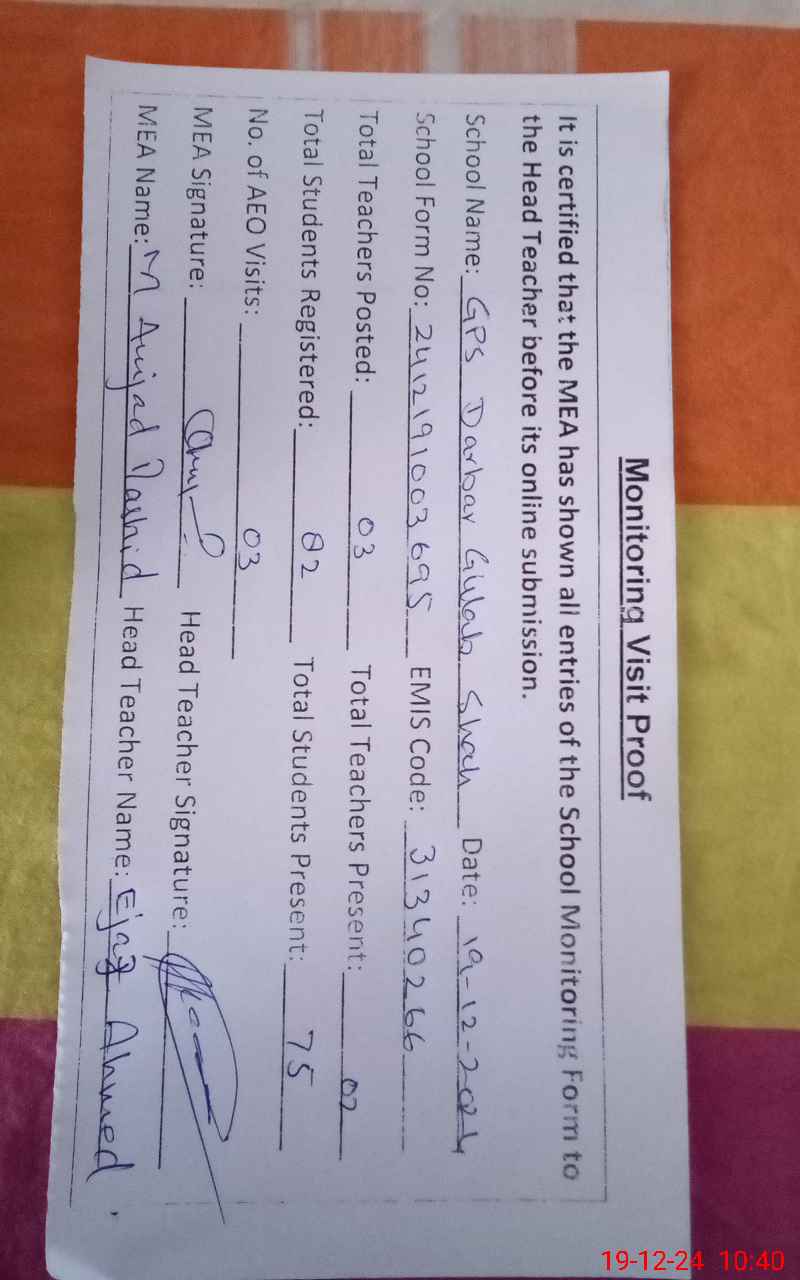 Monitoring Visit Proof
It is certified that the MEA has shown all entries of the School Monitoring Form to
the Head Teacher before its online submission.
School Name: GPS Darbar Gulab Shah Date: 19-12-2024
School Form No: 2412191003695 EMIS Code: 31340266
Total Teachers Posted: 03 Total Teachers Present: 02
Total Students Registered: 82 Total Students Present: 75
No. of AEO Visits: 03
MEA Signature: Head Teacher Signature:
MEA Name: M Amjad Rashid Head Teacher Name: Ejaz Ahmed
19-12-24 10:40